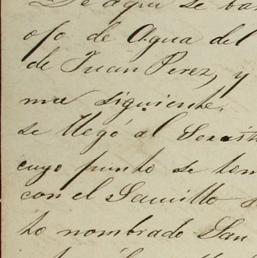 De aqui se ba
ojo de Agua del
de Juan Perez, y
ma siguiente.
se llegó al
cuyo punto se tom
con el Sausillo
to nombrado San